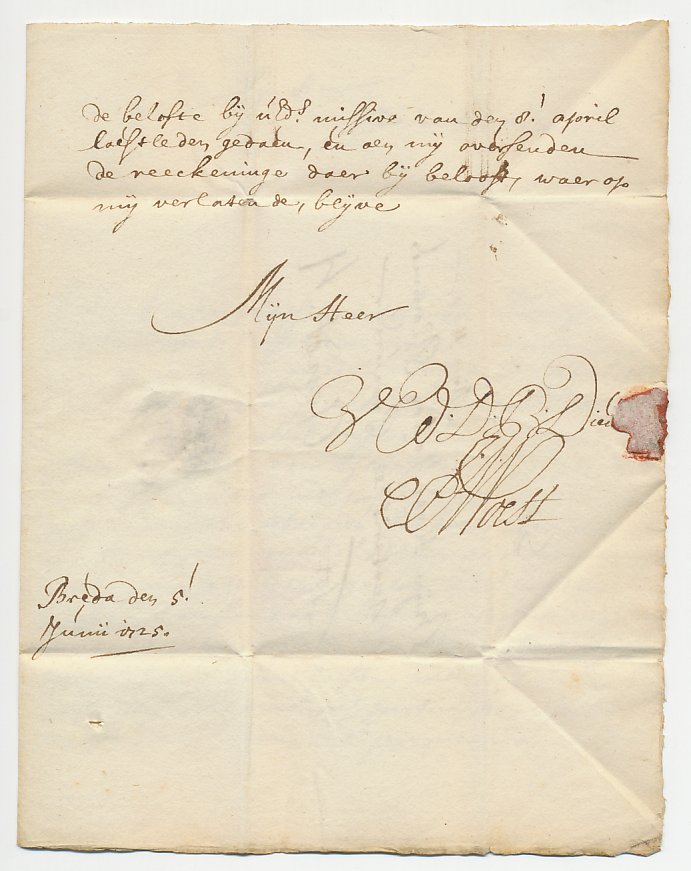 de belofte bij uEd.s missive van den 8.' april
laestleden gedaen, en aen mij oversenden
de reeckeninge daer bij belooft, waer op
mij verlatende, blijve
Mijn Heer
Breda den 5.'
Junii 1725.